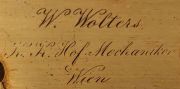 W. Wolters,
K. K. Hof Mechaniker
Wien